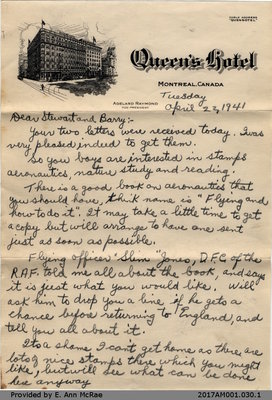 CABLE ADDRESS
"QUEENHOTEL"
Queen's Hotel
MONTREAL, CANADA
ADELARD RAYMOND
VICE-PRESIDENT
Tuesday
April 22, 1941
Dear Stewart and Barry:-
Your two letters were received today. I was
very pleased indeed to get them.
So you boys are interested in stamps
aeronautics, nature study and reading.
There is a good book on aeronautics that
you should have, think name is "Flying and
how to do it". It may take a little time to get
a copy but will arrange to have one sent
just as soon as possible.
Flying officer "Slim" Jones, DFC of the
RAF. told me all about the book, and says
it is just what you would like. Will
ask him to drop you a line if he gets a
chance before returning to England, and
tell you all about it.
Its a shame I can't get home as there are
lots of nice stamps there which you might
like, but will see what can be done
anyway
Provided by E. Ann McRae
2017AM001.030.1